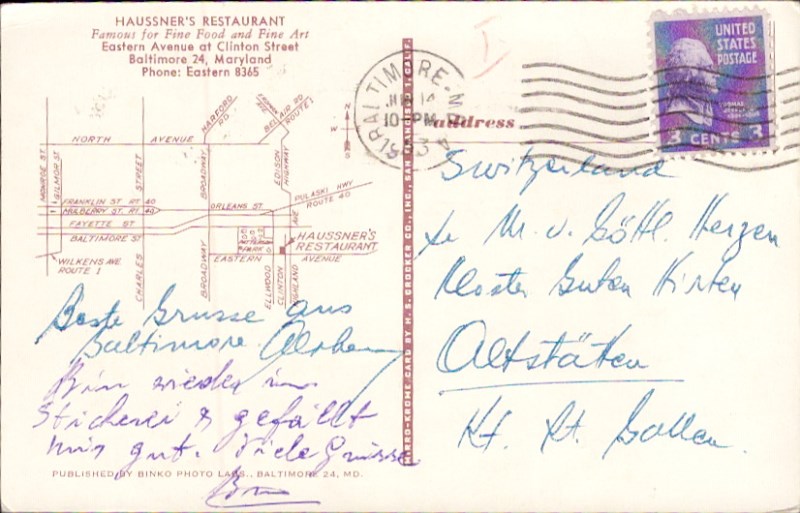 HAUSSNER'S RESTAURANT
Famous for Fine Food and Fine Art
Eastern Avenue at Clinton Street
Baltimore 24, Maryland
Phone: Eastern 8365
UNITED
STATES
POSTAGE
3 CENTS 3
BALTIMORE
10-PM
address
NORTH AVENUE
HARFORD RD
BEL AIR RD
ROUTE 1
N
S
MONROE ST.
GILMOR ST.
STREET
BROADWAY
EDISON
HIGHWAY
FRANKLIN ST RT 40
MULBERRY ST. RT 40
ORLEANS ST.
PULASKI HWY
ROUTE 40
FAYETTE ST
BALTIMORE ST
PATTERSON
PARK
HAUSSNER'S
RESTAURANT
EASTERN AVENUE
WILKENS AVE
ROUTE 1
CHARLES
BROADWAY
ELLWOOD
CLINTON
HIGHLAND
AVE
MIRRO-KROME CARD BY H. S. CROCKER CO., INC., SAN FRANCISCO 1, CALIF.
Switzerland
M. v. Göttl. Herzen
Kloster Guten Hirten
Altstätten
Kt. St. Gallen.
Beste Grüsse aus
Baltimore
Bin wieder in
Stickerei & gefällt
mir gut. Viele Grüsse
PUBLISHED BY BINKO PHOTO LABS., BALTIMORE 24, MD.